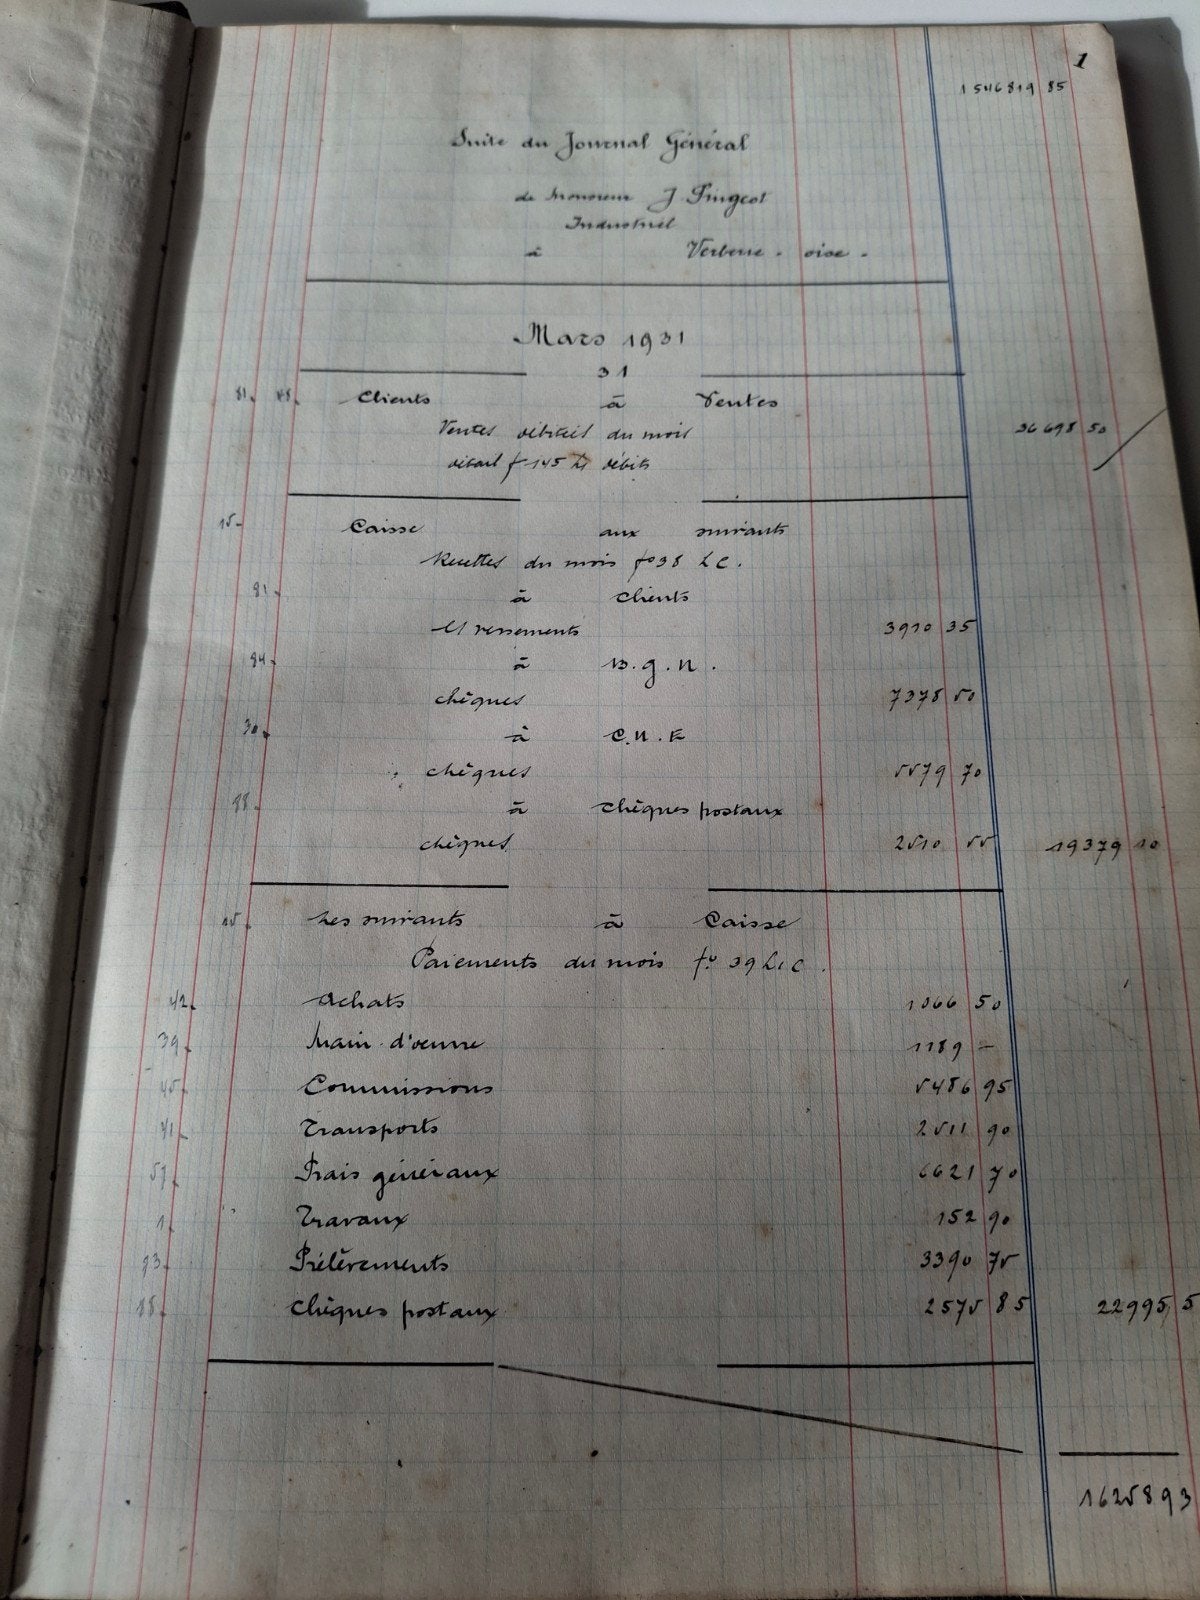 1
1546819 85
Suite du Journal Général
de Monsieur J Pingeot
Industriel
à Verberie - oise -
Mars 1931
31
81. 48. Clients à Ventes
Ventes débitées du mois 36698 50
détail f° 145 Lt débits
15- Caisse aux suivants
Recettes du mois f° 38 L C.
81- à clients
Versements 3910 35
84- à B.G.N.
chèques 7378 50
30. à C.N.E
chèques 5579 70
88- à chèques postaux
chèques 2510 55 19379 10
15. Les suivants à Caisse
Paiements du mois f° 39 L. C.
42. Achats 1066 50
39. Main d'oeuvre 1189 -
45. Commissions 5486 95
41- Transports 2511 90
51. Frais généraux 6621 70
1. Travaux 152 90
93. Prélèvements 3390 75
88. Chèques postaux 2575 85 22995 5
1625893